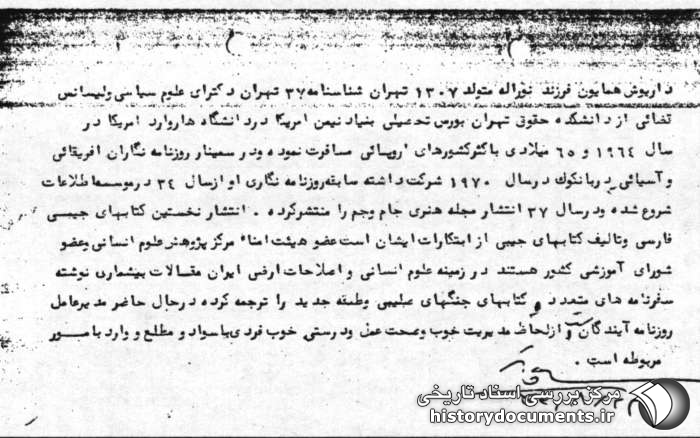 داریوش همایون فرزند نوراله متولد ۱۳۰۷ تهران شناسنامه ۳۷ تهران دکترای علوم سیاسی ولیسانس
قضائی از دانشکده حقوق تهران بورس تحصیلی بنیاد نیمن امریکا دردانشگاه هاروارد امریکا در
سال ۱۹۶۴ و ۶۵ میلادی باکثرکشورهای اروپائی مسافرت نموده ودر سمینار روزنامه نگاران افریقائی
و آسیائی دربانکوک درسال ۱۹۷۰ شرکت داشته سابقه روزنامه نگاری او ازسال ۳۴ درموسسه اطلاعات
شروع شده ودرسال ۳۷ انتشار مجله هنری جام وجم را منتشرکرده . انتشار نخستین کتابهای جیبی
فارسی وتالیف کتابهای جیبی از ابتکارات ایشان است عضو هیئت امناء مرکز پژوهش علوم انسانی وعضو
شورای آموزشی کشور هستند در زمینه علوم انسانی و اصلاحات ارضی ایران مقالات بیشماری نوشته
سفرنامه های متعدد و کتابهای جنگهای صلیبی وطبقه جدید را ترجمه کرده درحال حاضر مدیرعامل
روزنامه آیندگان و ازلحاظ مدیریت خوب وصحت عمل ودرستی خوب فردی باسواد و مطلع و وارد بامور
مربوطه است .
مرکز بررسی اسناد تاریخی
historydocuments.ir